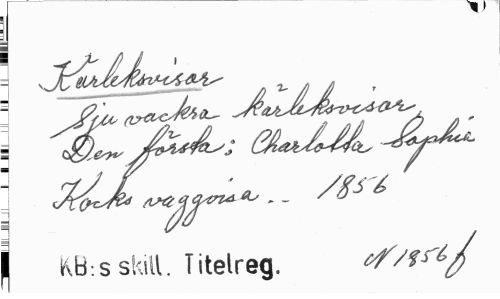 Kärleksvisor
Sju vackra kärleksvisor.
Den första: Charlotta Sophia
Kocks vaggvisa.. 1856
N 1856 f
KB:s skill. Titelreg.